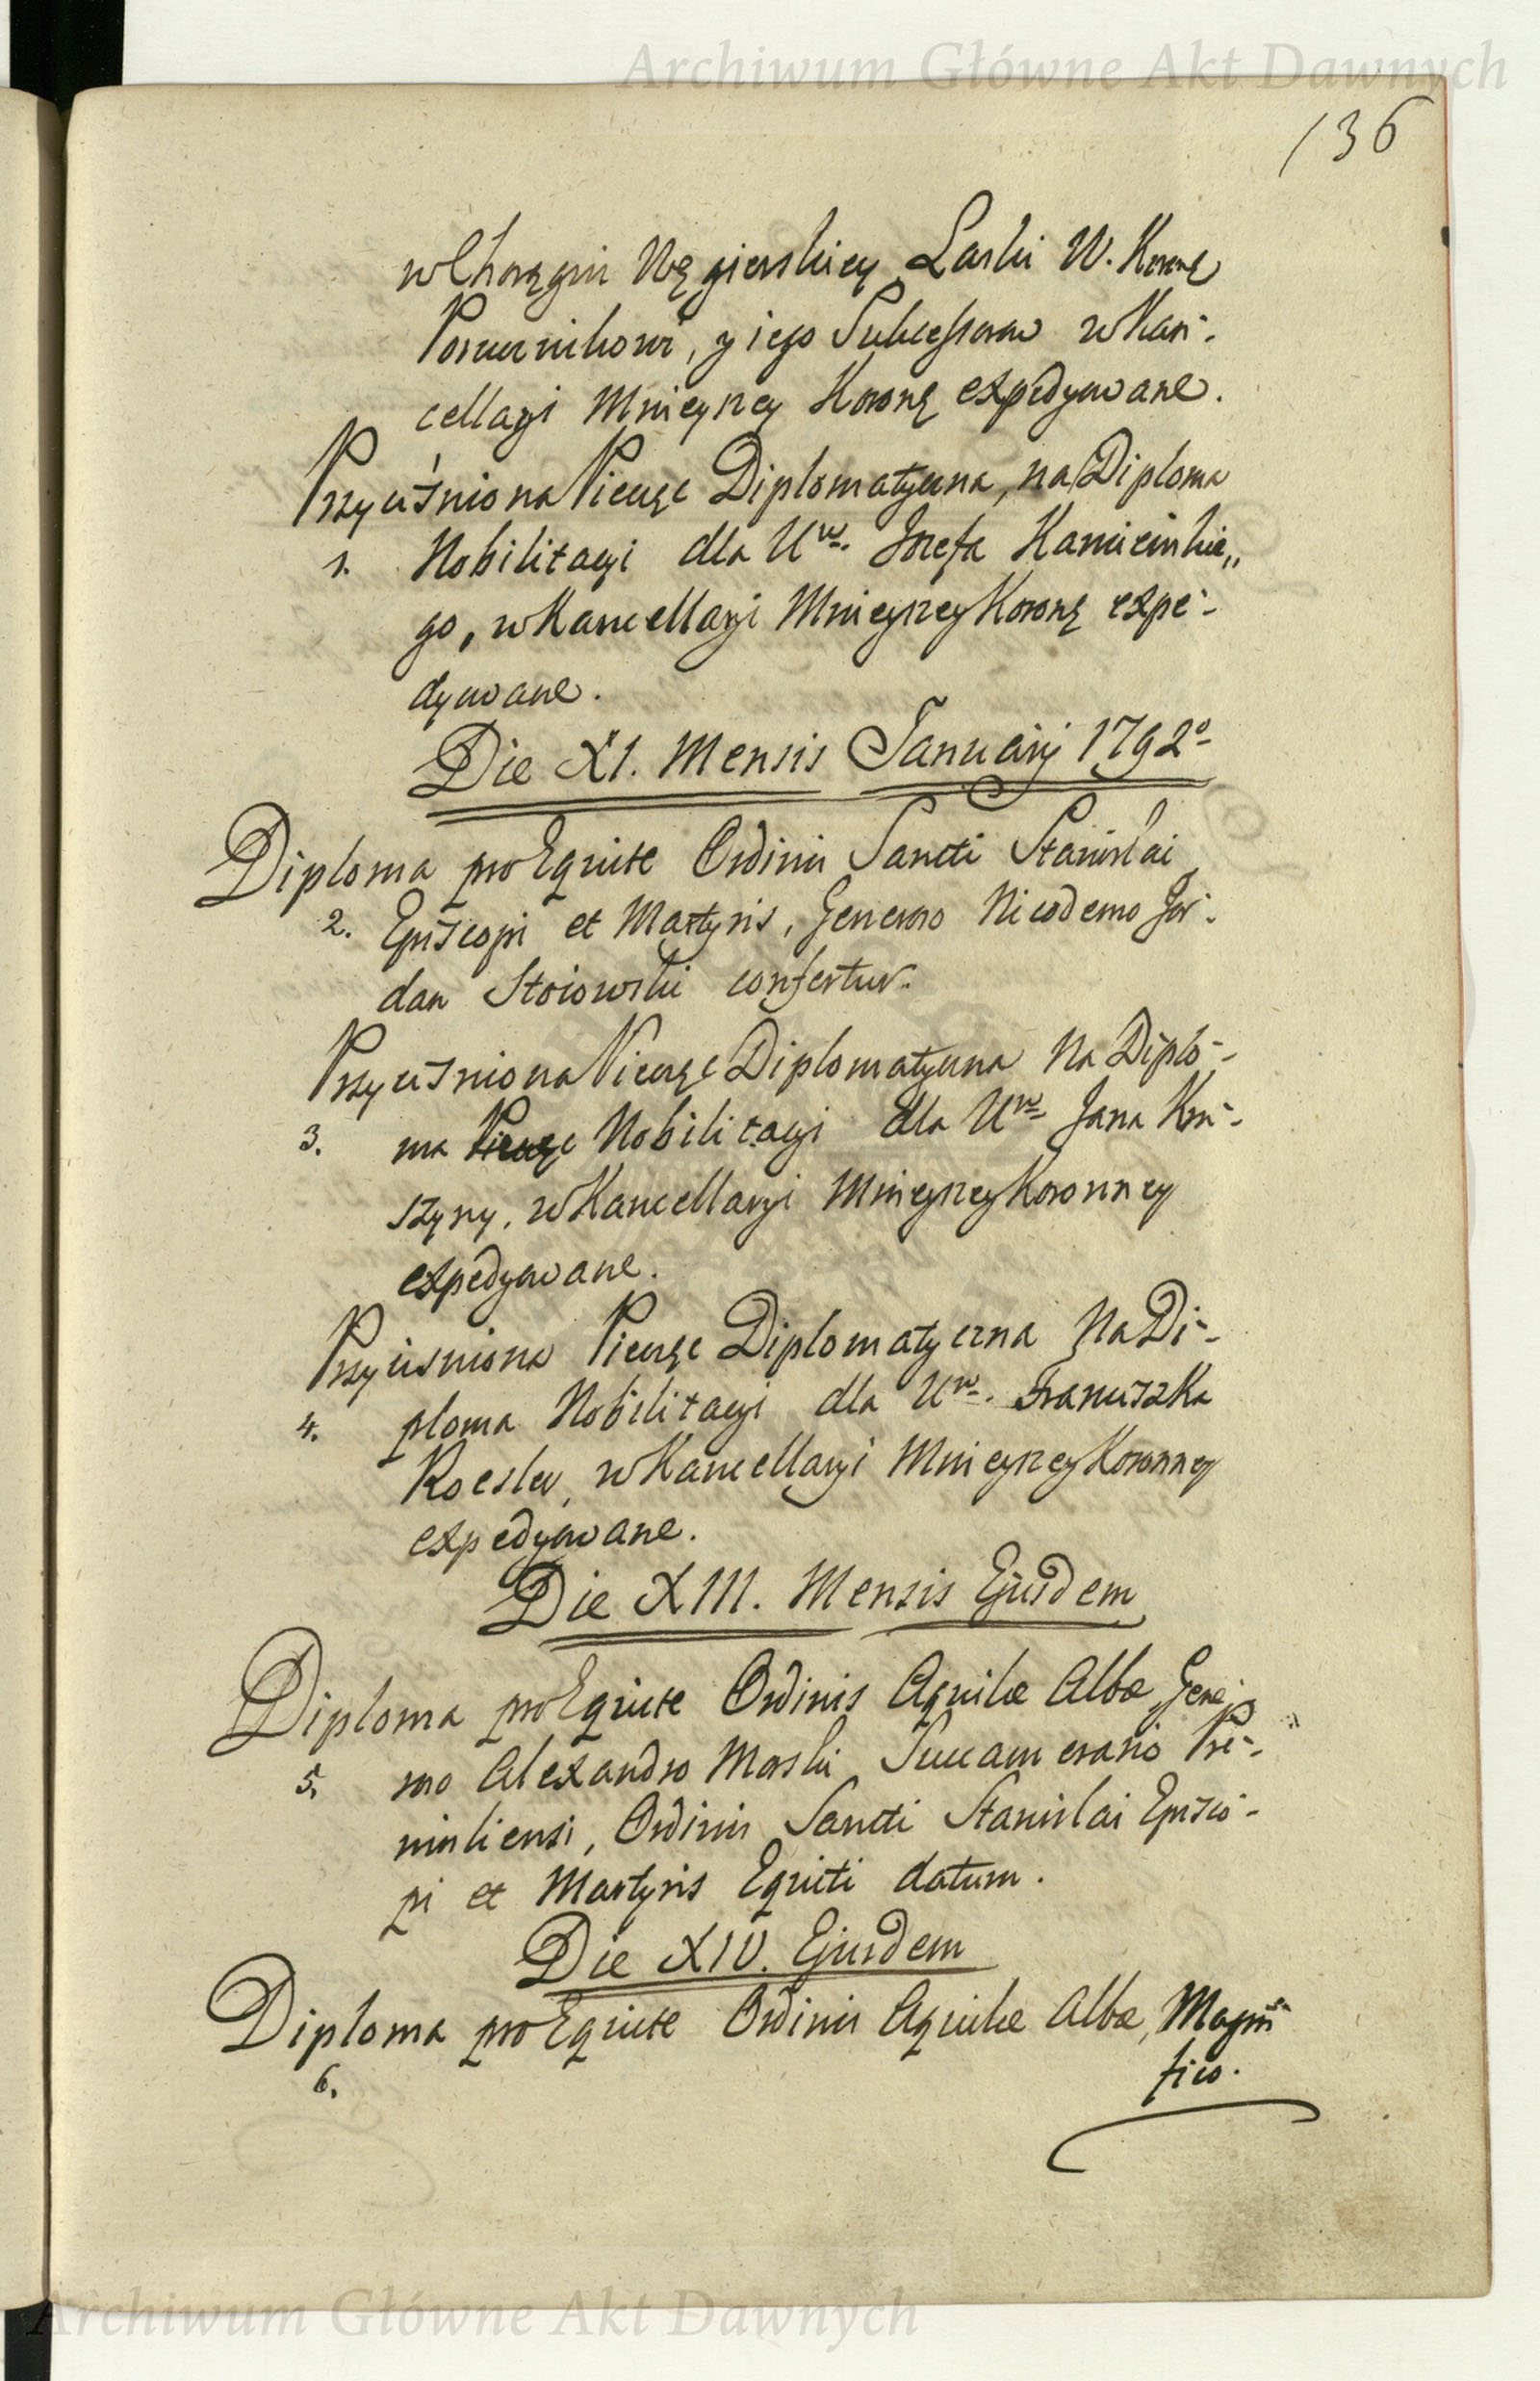 Archiwum Główne Akt Dawnych
136
w Chorągwi Węgierskiey Laski W. Koronę
Porucznikowi, y iego Sukcessorow w Kan-
cellaryi Mnieyszey Koronę expedyowane.
Przyciśniona Pieczęć Diplomatyczna, na Diploma
1. Nobilitacyi dla Uro. Jozefa Kamieńskie,,
go, w Kancellaryi Mnieyszey Koronę expe-
dyowane.
Die XI. Mensis Januarij 1792o
Diploma pro Equite Ordinis Sancti Stanislai
2. Episcopi et Martyris, Generoso Nicodemo Jor-
dan Stoiowski confertur.
Przyciśniona Pieczęć Diplomatyczna Na Diplo-
3. ma Nobilitacyi dla Uro Jana Kru-
szyny, w Kancellaryi Mnieyszey Koronney
expedyowane.
Przyciśniona Pieczęć Diplomatyczna Na Di-
4. ploma Nobilitacyi dla Uro. Franciszka
Roesler, w Kancellaryi Mnieyszey Koronney
expedyowane.
Die XIII. Mensis Ejusdem
Diploma pro Equite Ordinis Aquilæ Albæ Gene-
5. roso Alexandro Morski Succamerario Pre-
misliensi, Ordinis Sancti Stanislai Episco-
pi et Martyris Equiti datum.
Die XIV. Ejusdem
Diploma pro Equite Ordinis Aquilæ Albæ, Magni-
6. fico.
Archiwum Główne Akt Dawnych